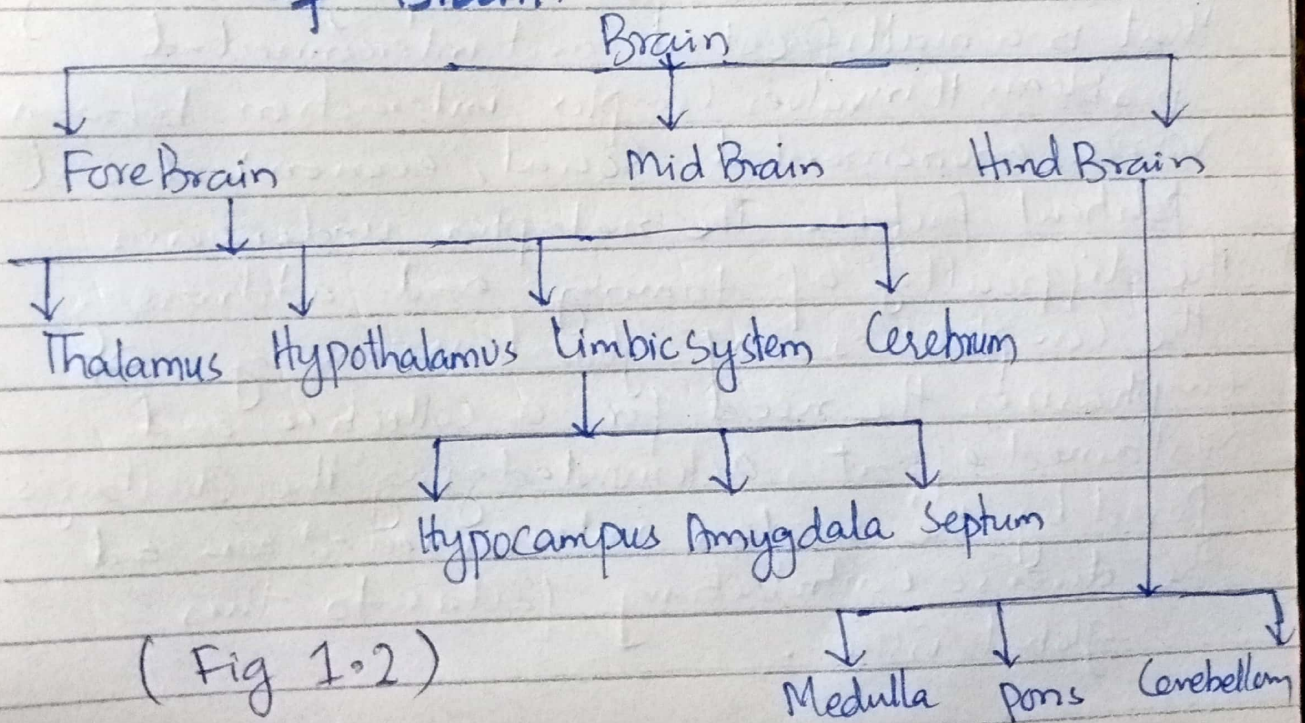 Brain
Fore Brain Mid Brain Hind Brain
Thalamus Hypothalamus Limbic System Cerebrum
Hypocampus Amygdala Septum
(Fig 1.2)
Medulla Pons Cerebellum